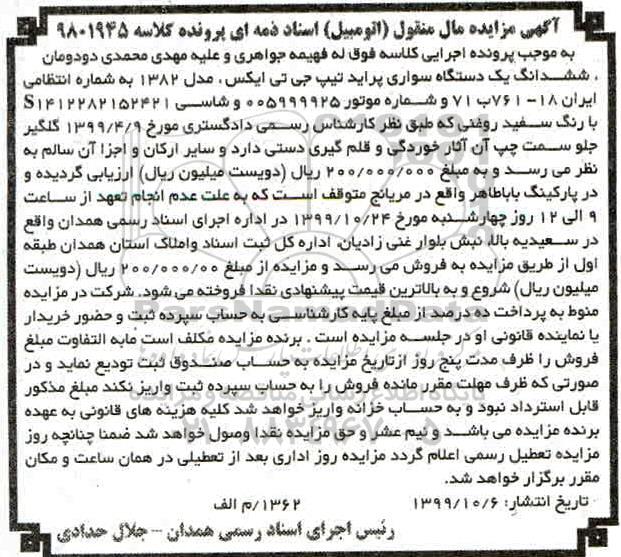 آگهی مزایده مال منقول (اتومبیل) اسناد ذمه ای پرونده کلاسه ۹۸۰۱۹۴۵
به موجب پرونده اجرایی کلاسه فوق له فهیمه جواهری و علیه مهدی محمدی دودومان
، ششدانگ یک دستگاه سواری پراید تیپ جی تی ایکس ، مدل ۱۳۸۲ به شماره انتظامی
ایران ۱۸- ۷۶۱ب ۷۱ و شماره موتور ۰۰۵۹۹۹۲۵ و شاسی S۱۴۱۲۲۸۲۱۵۲۴۲۱
با رنگ سفید روغنی که طبق نظر کارشناس رسمی دادگستری مورخ ۱۳۹۹/۴/۹ گلگیر
جلو سمت چپ آن آثار خوردگی و قلم گیری دستی دارد و سایر ارکان و اجزا آن سالم به
نظر می رسد و به مبلغ ۲۰۰/۰۰۰/۰۰۰ ریال (دویست میلیون ریال) ارزیابی گردیده و
در پارکینگ باباطاهر واقع در مریانج متوقف است که به علت عدم انجام تعهد از ساعت
۹ الی ۱۲ روز چهارشنبه مورخ ۱۳۹۹/۱۰/۲۴ در اداره اجرای اسناد رسمی همدان واقع
در سعیدیه بالا، نبش بلوار غنی زادیان، اداره کل ثبت اسناد واملاک استان همدان طبقه
اول از طریق مزایده به فروش می رسد و مزایده از مبلغ ۲۰۰/۰۰۰/۰۰ ریال (دویست
میلیون ریال) شروع و به بالاترین قیمت پیشنهادی نقدا فروخته می شود. شرکت در مزایده
منوط به پرداخت ده درصد از مبلغ پایه کارشناسی به حساب سپرده ثبت و حضور خریدار
یا نماینده قانونی او در جلسه مزایده است . برنده مزایده مکلف است مابه التفاوت مبلغ
فروش را ظرف مدت پنج روز ازتاریخ مزایده به حساب صندوق ثبت تودیع نماید و در
صورتی که ظرف مهلت مقرر مانده فروش را به حساب سپرده ثبت واریز نکند مبلغ مذکور
قابل استرداد نبود و به حساب خزانه واریز خواهد شد کلیه هزینه های قانونی به عهده
برنده مزایده می باشد و نیم عشر و حق مزایده نقدا وصول خواهد شد ضمنا چنانچه روز
مزایده تعطیل رسمی اعلام گردد مزایده روز اداری بعد از تعطیلی در همان ساعت و مکان
مقرر برگزار خواهد شد.
تاریخ انتشار: ۱۳۹۹/۱۰/۶ ۱۳۶۲/م الف
رئیس اجرای اسناد رسمی همدان - جلال حدادی